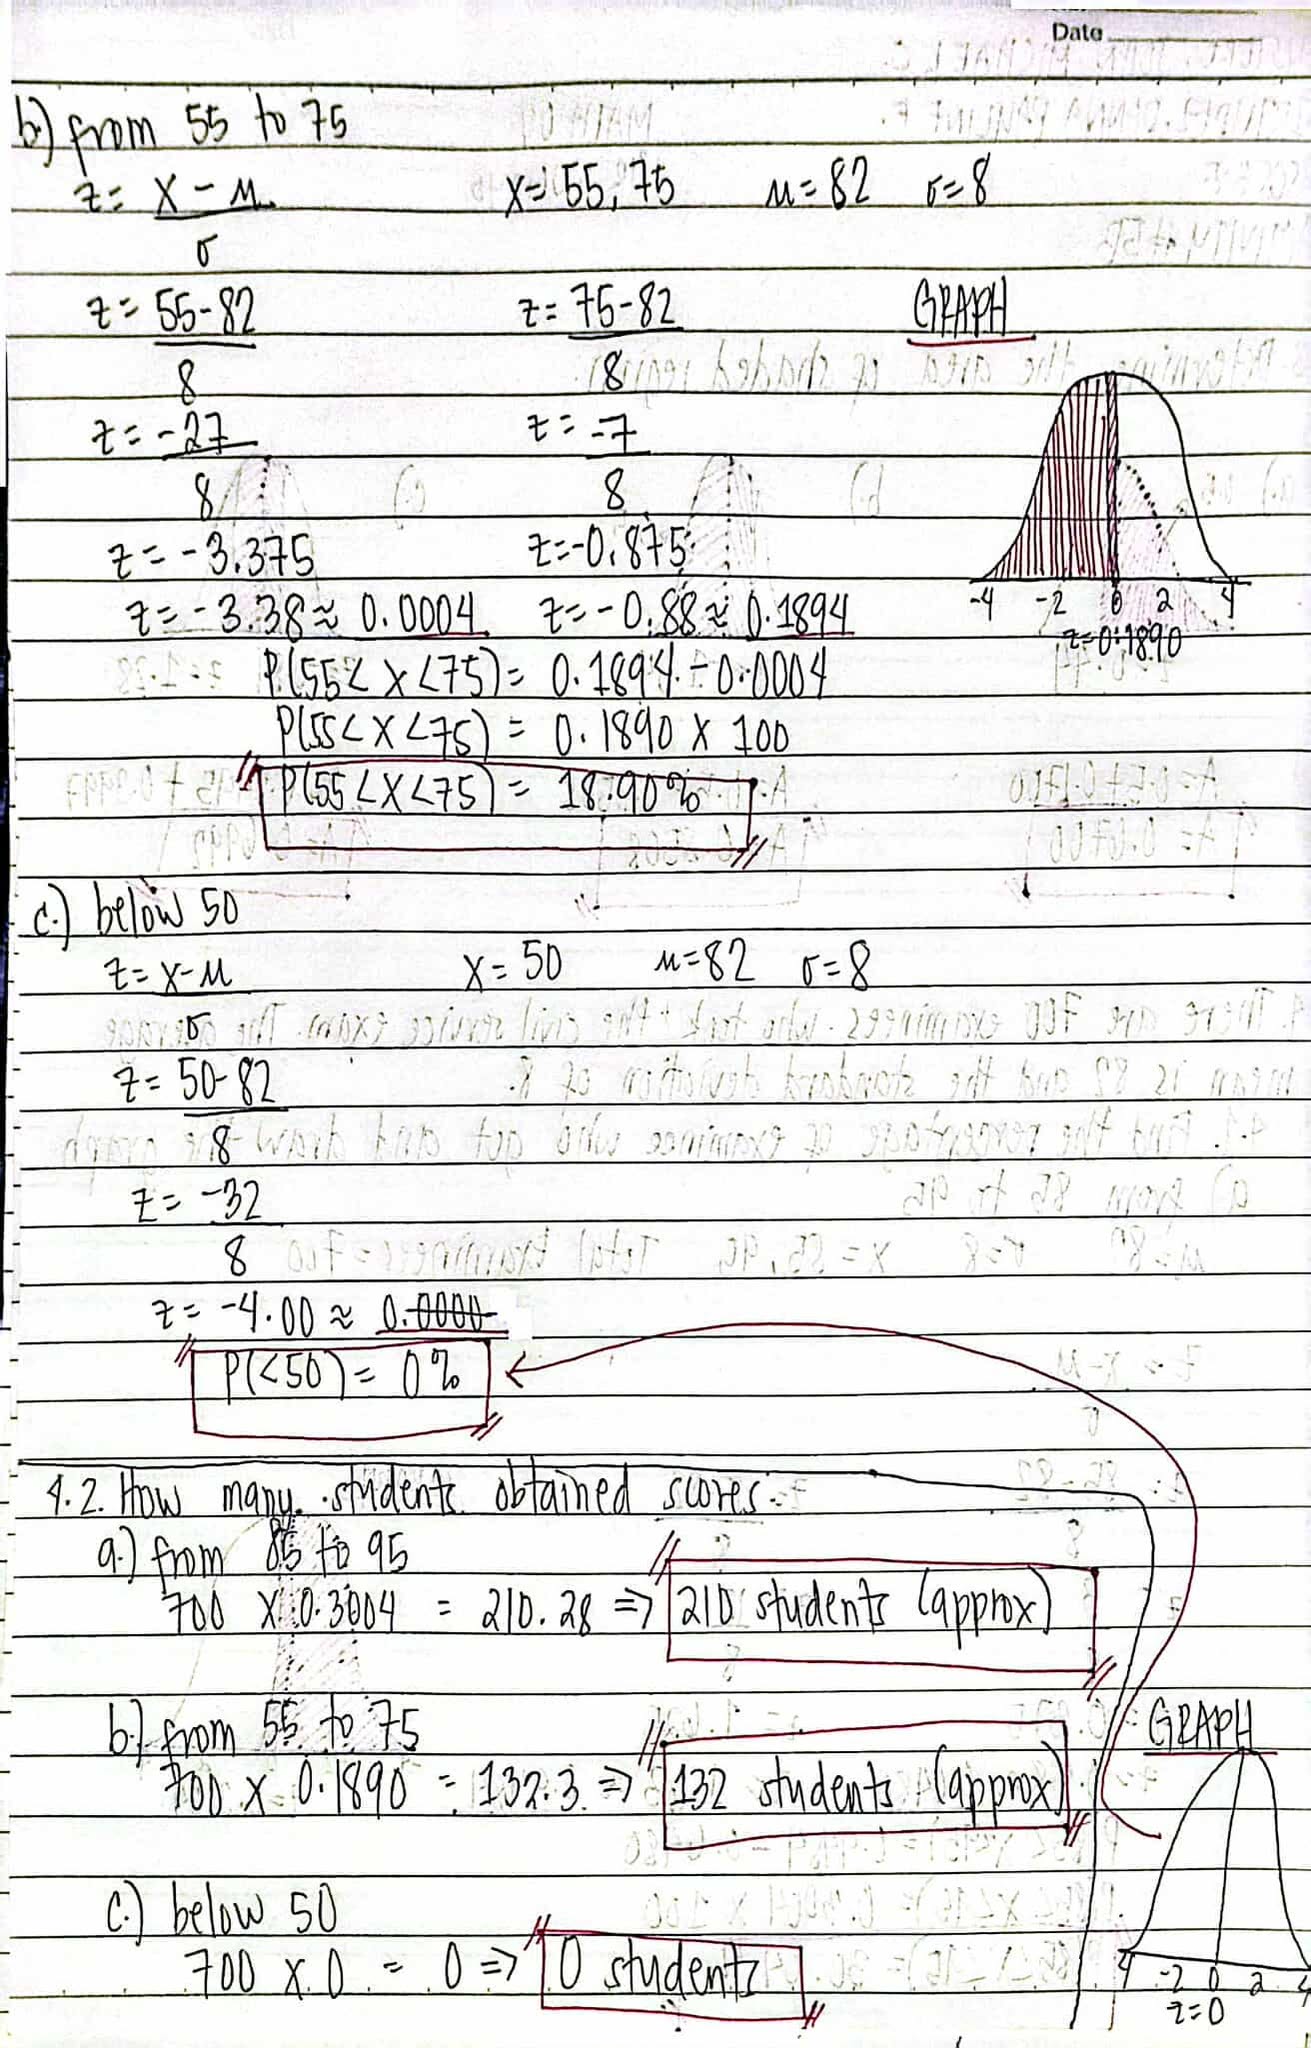 Date
b.) from 55 to 75
z = x - μ
σ
x = 55, 75 μ = 82 σ = 8
z = 55-82
8
z = 75-82
8
GRAPH
z = -27
8
z = -7
8
z = -3.375
z = -0.875
z = -3.38 ≈ 0.0004 z = -0.88 ≈ 0.1894
-4 -2 0 2 4
z=0.1890
P(55 < x < 75) = 0.1894 - 0.0004
P(55 < x < 75) = 0.1890 x 100
P(55 < x < 75) = 18.90%
c.) below 50
z = x-μ
σ
x = 50 μ = 82 σ = 8
z = 50-82
8
z = -32
8
z = -4.00 ≈ 0.0000
P(<50) = 0%
4.2. How many students obtained scores:
a.) from 85 to 95
700 x 0.3004 = 210.28 => 210 students (approx)
b.) from 55 to 75
700 x 0.1890 = 132.3 => 132 students (approx)
GRAPH
c.) below 50
700 x 0 = 0 => 0 students
-2 0 2 4
z=0